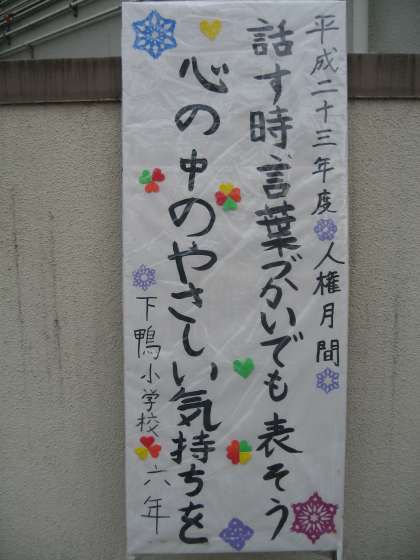 平成二十三年度 人権月間
話す時、言葉づかいでも表そう
心の中のやさしい気持ちを
下鴨小学校 六年